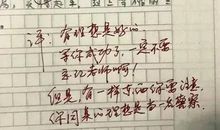 注：有理想是好的
等你成功了，一定不要
忘记老师啊！
但是，有一样东西你要注意，
你同桌的理想是当一名警察。